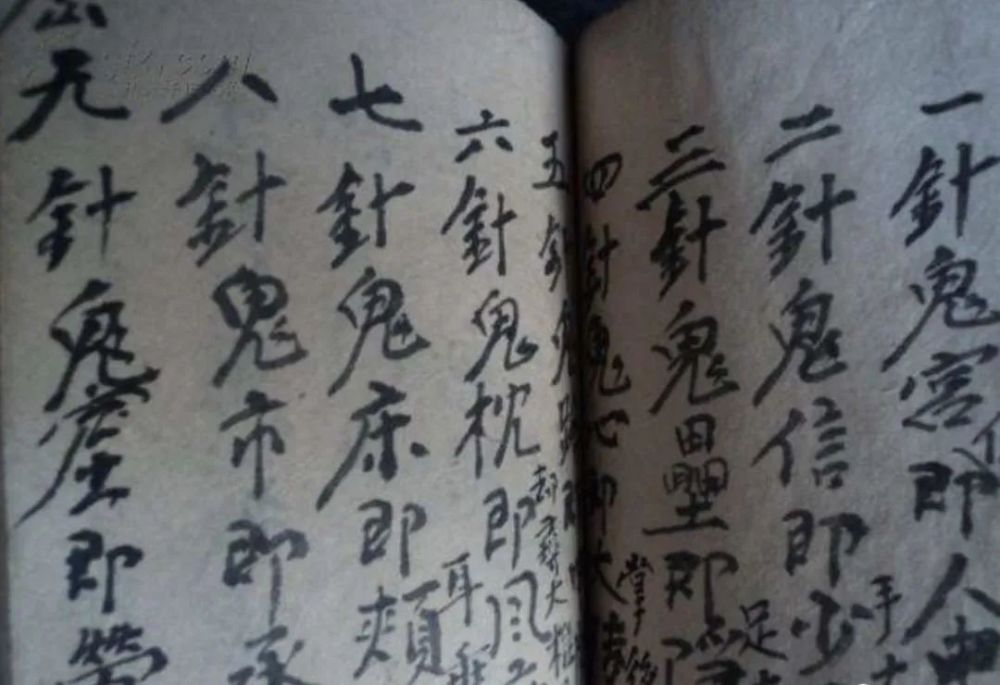 一針鬼宮即人中
二針鬼信即少
手
三針鬼壘即
足
四針鬼心即大
掌後
五針鬼路即
六針鬼枕即風
耳
七針鬼床即頰
八針鬼市即承
九針鬼窟即勞